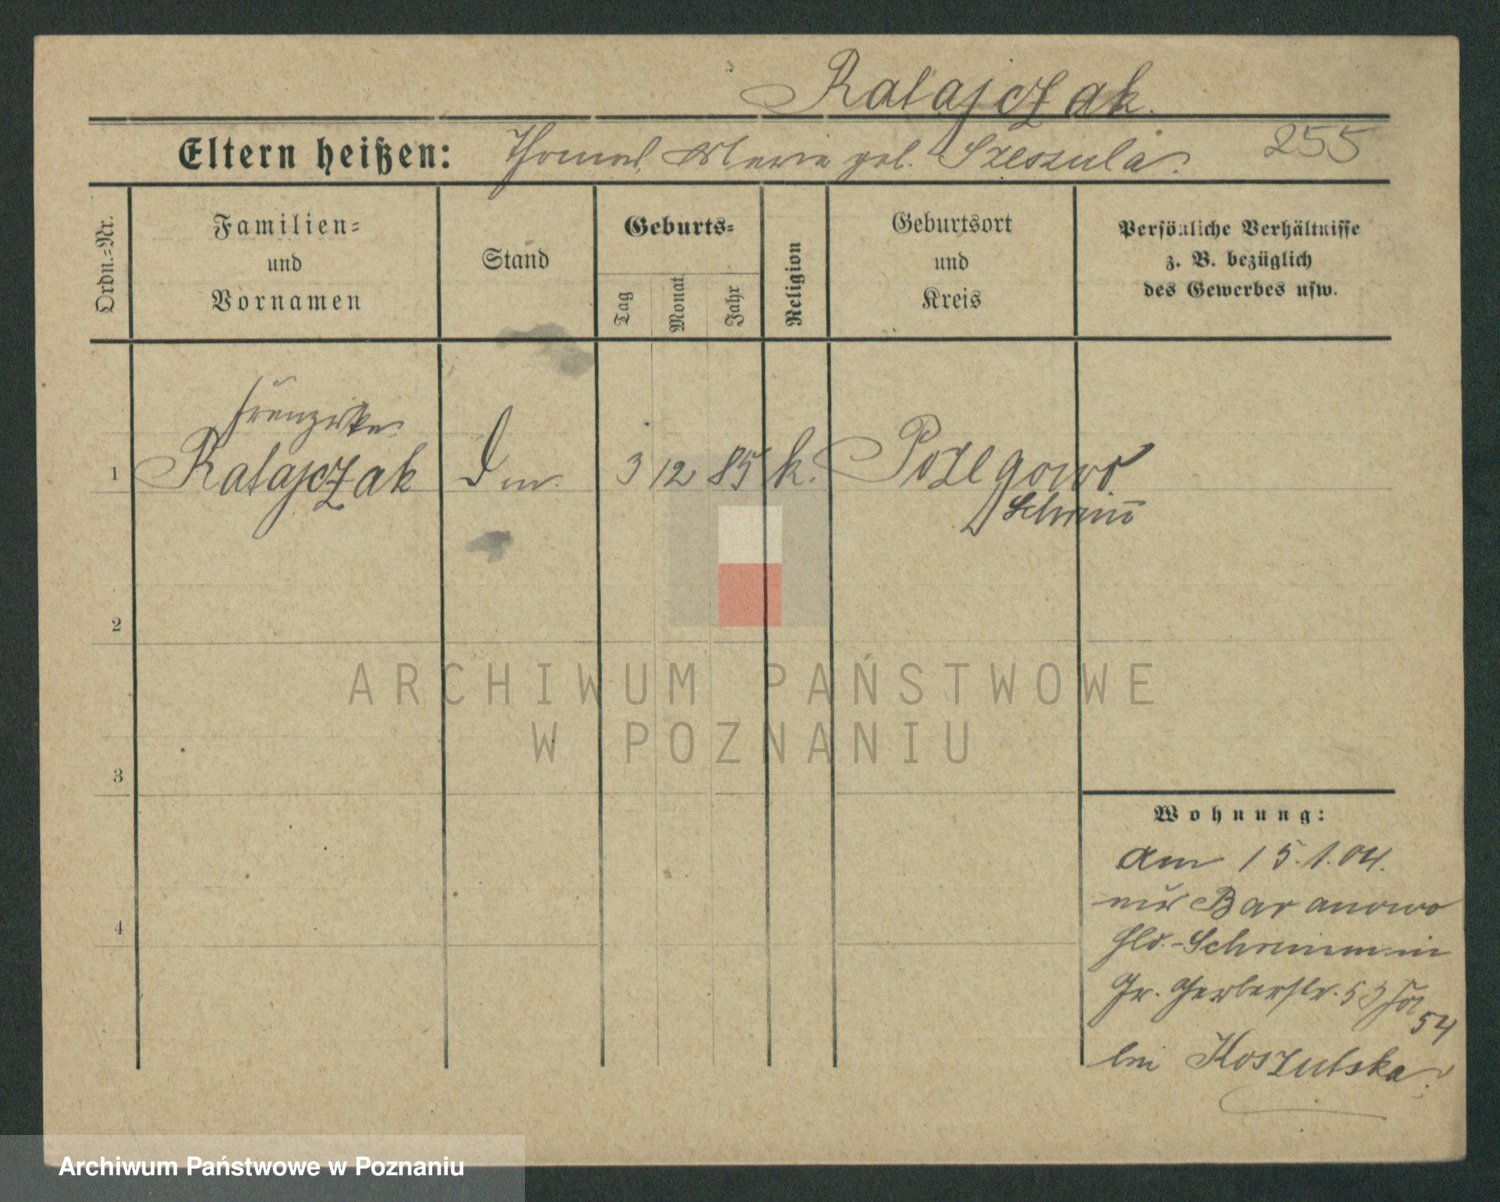 Ratajczak.
Eltern heißen: Thomas, Maria geb. Szeszula. 255
Ordn.-Nr.
Familien-
und
Vornamen
Stand
Geburts-
Tag
Monat
Jahr
Religion
Geburtsort
und
Kreis
Persönliche Verhältnisse
z. B. bezüglich
des Gewerbes usw.
Franziska
1 Ratajczak 3 12 85 k.
Schrimm
2
3
4
Wohnung:
Am 15.1.04.
aus Baranowo
Schrimm in
Gr. Gerberstr. 53
54
bei Koszutska.
ARCHIWUM PAŃSTWOWE
W POZNANIU
Archiwum Państwowe w Poznaniu